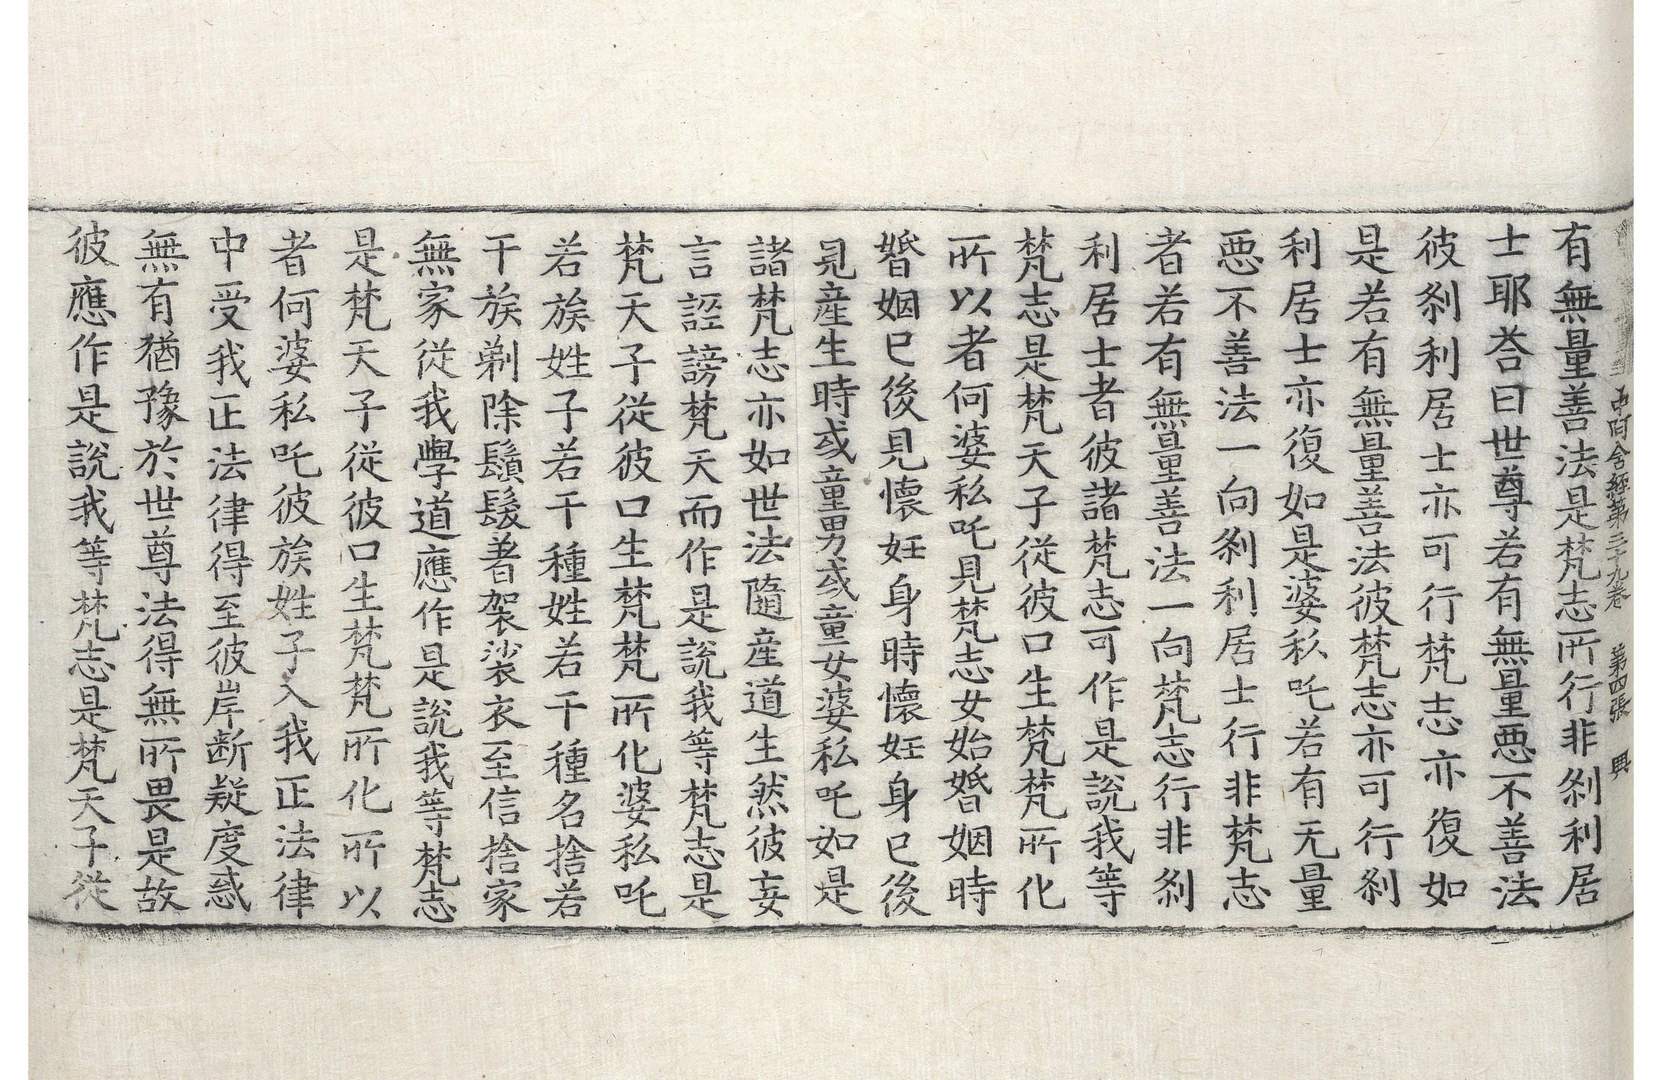 中阿含經第三十九卷　第四張　興
有無量善法是梵志所行非刹利居
士耶荅曰世尊若有無量惡不善法
彼刹利居士亦可行梵志亦復如
是若有無量善法彼梵志亦可行刹
利居士亦復如是婆私吒若有无量
惡不善法一向刹利居士行非梵志
者若有無量善法一向梵志行非刹
利居士者彼諸梵志可作是說我等
梵志是梵天子從彼口生梵梵所化
所以者何婆私吒見梵志女始婚姻時
婚姻已後見懷妊身時懷妊身已後
見産生時或童男或童女婆私吒如是
諸梵志亦如世法隨産道生然彼妄
言誣謗梵天而作是說我等梵志是
梵天子從彼口生梵梵所化婆私吒
若族姓子若干種姓若干種名捨若
干族剃除鬚髮著袈裟衣至信捨家
無家從我學道應作是說我等梵志
是梵天子從彼口生梵梵所化所以
者何婆私吒彼族姓子入我正法律
中受我正法律得至彼岸断疑度惑
無有猶豫於世尊法得無所畏是故
彼應作是說我等梵志是梵天子從